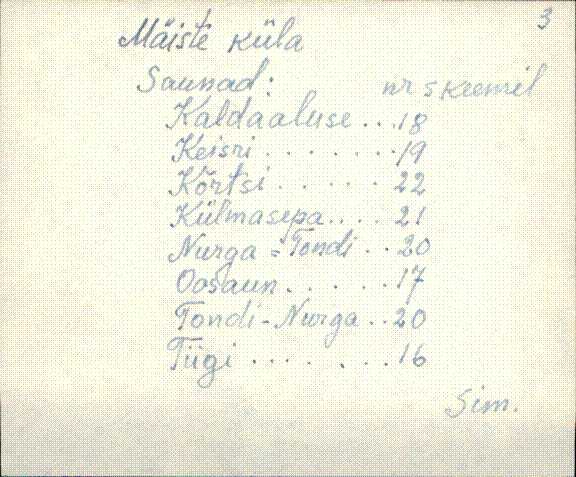 3
Mäiste küla
Saunad: nr skeemil
Kaldaaluse...18
Keisri........19
Kõrtsi......22
Külmasepa....21
Nurga = Tondi..20
Oosaun......17
Tondi-Nurga..20
Tiigi........16
Sim.